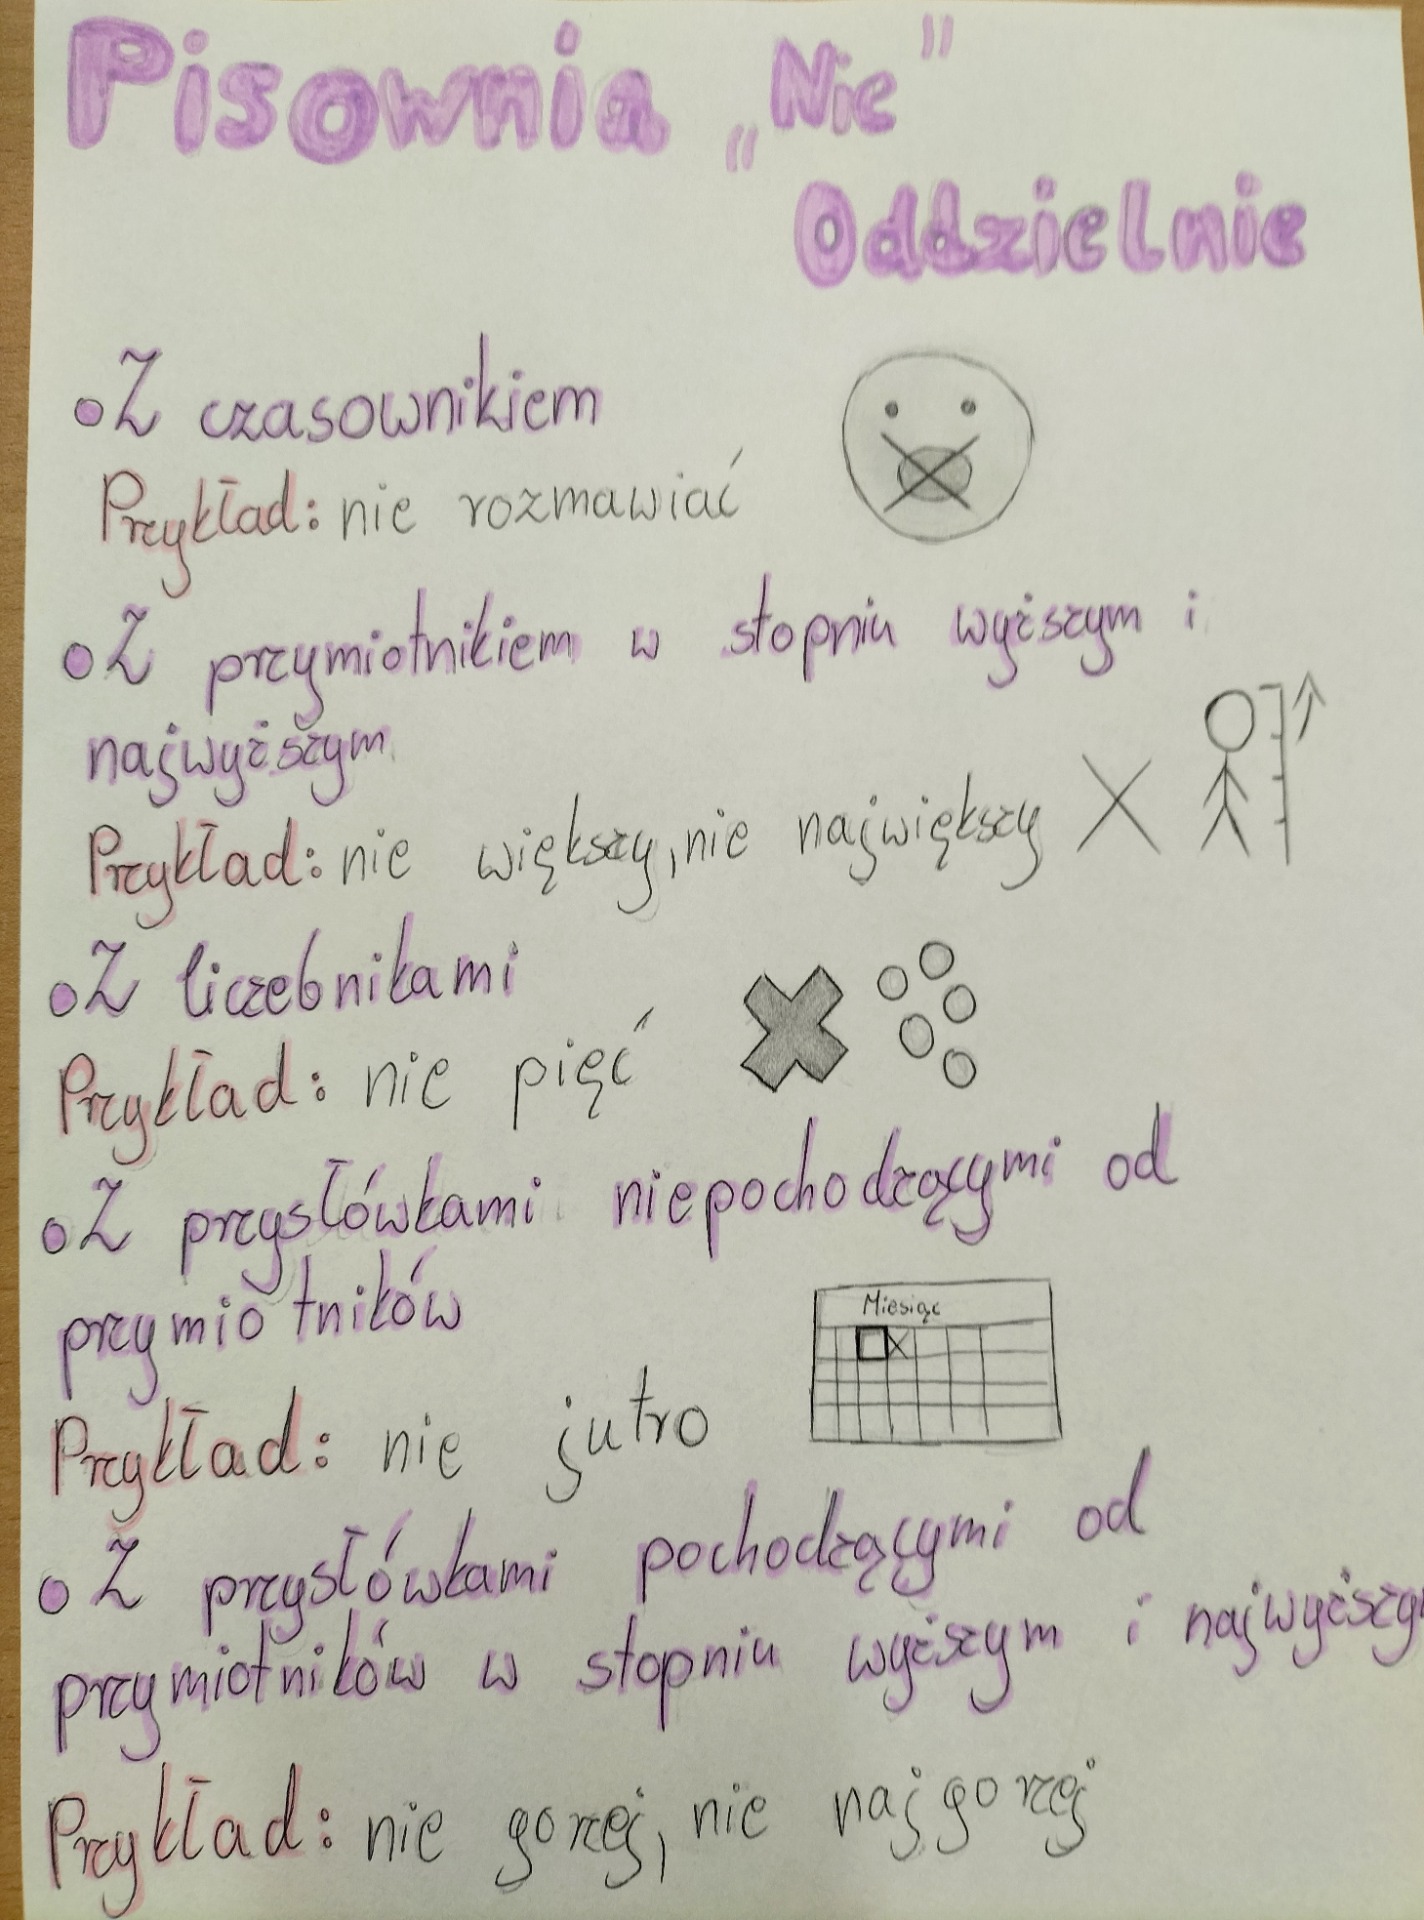 Pisownia „Nie"
Oddzielnie
Z czasownikiem
Przykład: nie rozmawiać
Z przymiotnikiem w stopniu wyższym i
najwyższym
Przykład: nie większy, nie największy
Z liczebnikami
Przykład: nie pięć
Z przysłówkami niepochodzącymi od
przymiotników
Miesiąc
Przykład: nie jutro
Z przysłówkami pochodzącymi od
przymiotników w stopniu wyższym i najwyższym
Przykład: nie gorzej, nie najgorzej